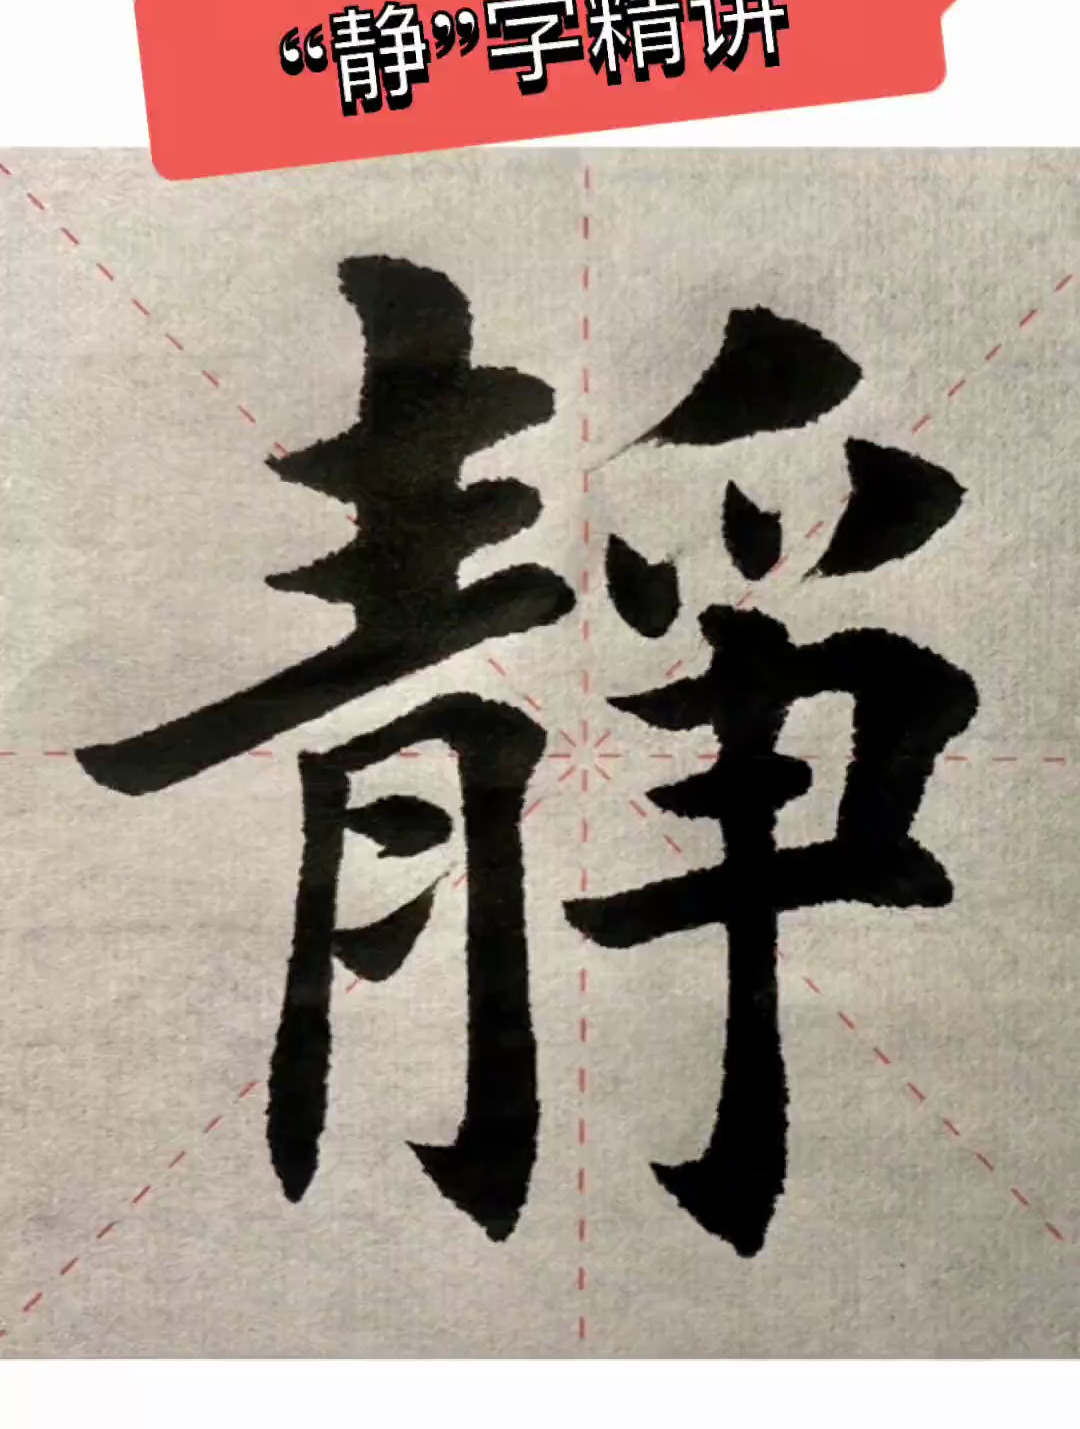 “静”字精讲
靜